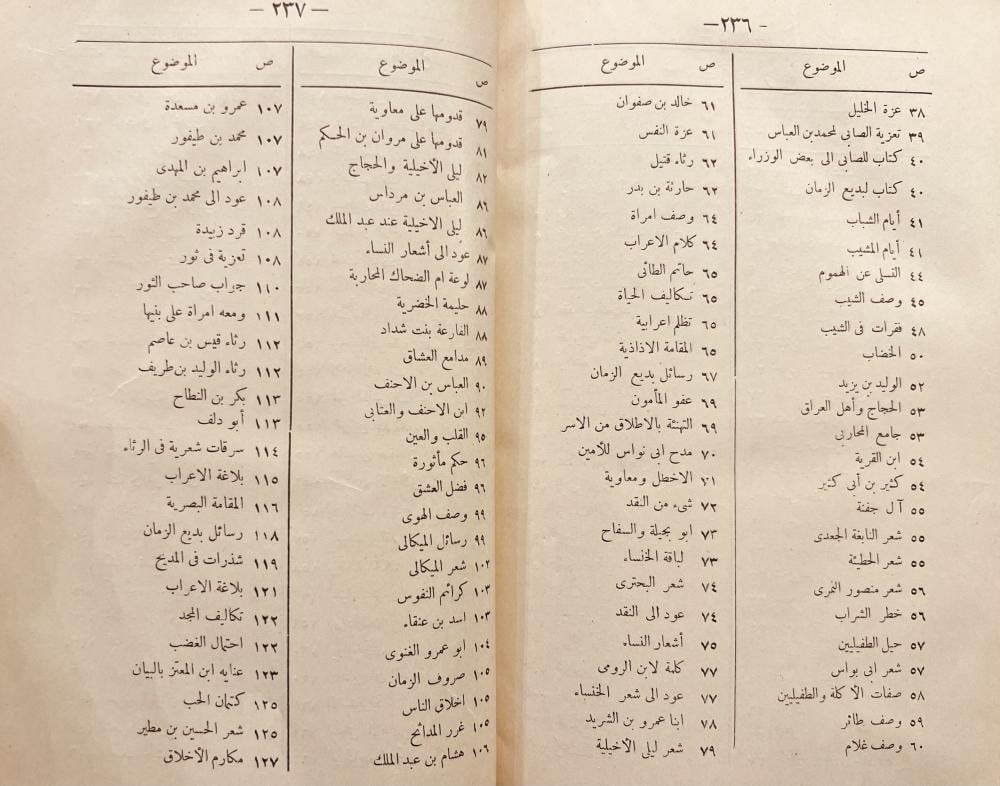 — ٢٣٦ —
ص الموضوع
٣٨ عزة الخليل
٣٩ تعزية الصابى لمحمد بن العباس
٤٠ كتاب للصابى الى بعض الوزراء
٤٠ كتاب لبديع الزمان
٤١ أيام الشباب
٤١ أيام المشيب
٤٤ التسلى عن الهموم
٤٥ وصف الشيب
٤٨ فقرات فى الشيب
٥٠ الخضاب
٥٢ الوليد بن يزيد
٥٣ الحجاج وأهل العراق
٥٣ جامع المحاربى
٥٤ ابن القرية
٥٤ كثير بن أبى كثير
٥٥ آل جفنة
٥٥ شعر النابغة الجعدى
٥٥ شعر الحطيئة
٥٦ شعر منصور النمرى
٥٦ خطر الشراب
٥٧ حيل الطفيليين
٥٧ شعر ابى بواس
٥٨ صفات الأكلة والطفيليين
٥٩ وصف طائر
٦٠ وصف غلام
ص الموضوع
٦١ خالد بن صفوان
٦١ عزة النفس
٦٢ رثاء قتيل
٦٢ حارثة بن بدر
٦٤ وصف امراة
٦٤ كلام الاعراب
٦٥ حاتم الطائى
٦٥ تكاليف الحياة
٦٥ تظلم اعرابية
٦٥ المقامة الاذاذية
٦٧ رسائل بديع الزمان
٦٩ عفو المأمون
٦٩ التهنئة بالاطلاق من الاسر
٧٠ مدح ابى نواس للأمين
٧١ الاخطل ومعاوية
٧٢ شىء من النقد
٧٣ ابو بجيلة والسفاح
٧٣ لباقة الخنساء
٧٤ شعر البحترى
٧٤ عود الى النقد
٧٥ أشعار النساء
٧٧ كلمة لابن الرومى
٧٧ عود الى شعر الخنساء
٧٨ ابنا عمرو بن الشريد
٧٩ شعر ليلى الأخيلية
— ٢٣٧ —
ص الموضوع
٧٩ قدومها على معاوية
٨١ قدومها على مروان بن الحكم
٨٢ ليلى الأخيلية والحجاج
٨٦ العباس بن مرداس
٨٦ ليلى الاخيلية عند عبد الملك
٨٧ عود الى أشعار النساء
٨٧ لوعة ام الضحاك المحاربة
٨٨ حليمة الخضرية
٨٨ الفارعة بنت شداد
٨٩ مدامع العشاق
٩٠ العباس بن الاحنف
٩٢ ابن الاحنف والعتابى
٩٥ القلب والعين
٩٦ حكم مأثورة
٩٦ فضل العشق
٩٩ وصف الهوى
٩٩ رسائل الميكالى
١٠٢ شعر الميكالى
١٠٣ كرائم النفوس
١٠٣ اسد بن عنقاء
١٠٤ ابو عمرو الغنوى
١٠٥ صروف الزمان
١٠٥ اخلاق الناس
١٠٥ غرر المدائح
١٠٦ هشام بن عبد الملك
ص الموضوع
١٠٧ عمرو بن مسعدة
١٠٧ محمد بن طيفور
١٠٧ ابراهيم بن المهدى
١٠٨ عود الى محمد بن طيفور
١٠٨ قرد زبيدة
١٠٨ تعزية فى ثور
١١٠ جراب صاحب الثور
١١١ ومعه امراة على بنيها
١١٢ رثاء قيس بن عاصم
١١٢ رثاء الوليد بن طريف
١١٣ بكر بن النطاح
١١٣ أبو دلف
١١٤ سرقات شعرية فى الرثاء
١١٥ بلاغة الاعراب
١١٦ المقامة البصرية
١١٨ رسائل بديع الزمان
١١٩ شذرات فى المديح
١٢١ بلاغة الاعراب
١٢٢ تكاليف المجد
١٢٢ احتمال الغضب
١٢٣ عنايه ابن المعتز بالبيان
١٢٥ كتمان الحب
١٢٥ شعر الحسين بن مطير
١٢٧ مكارم الأخلاق